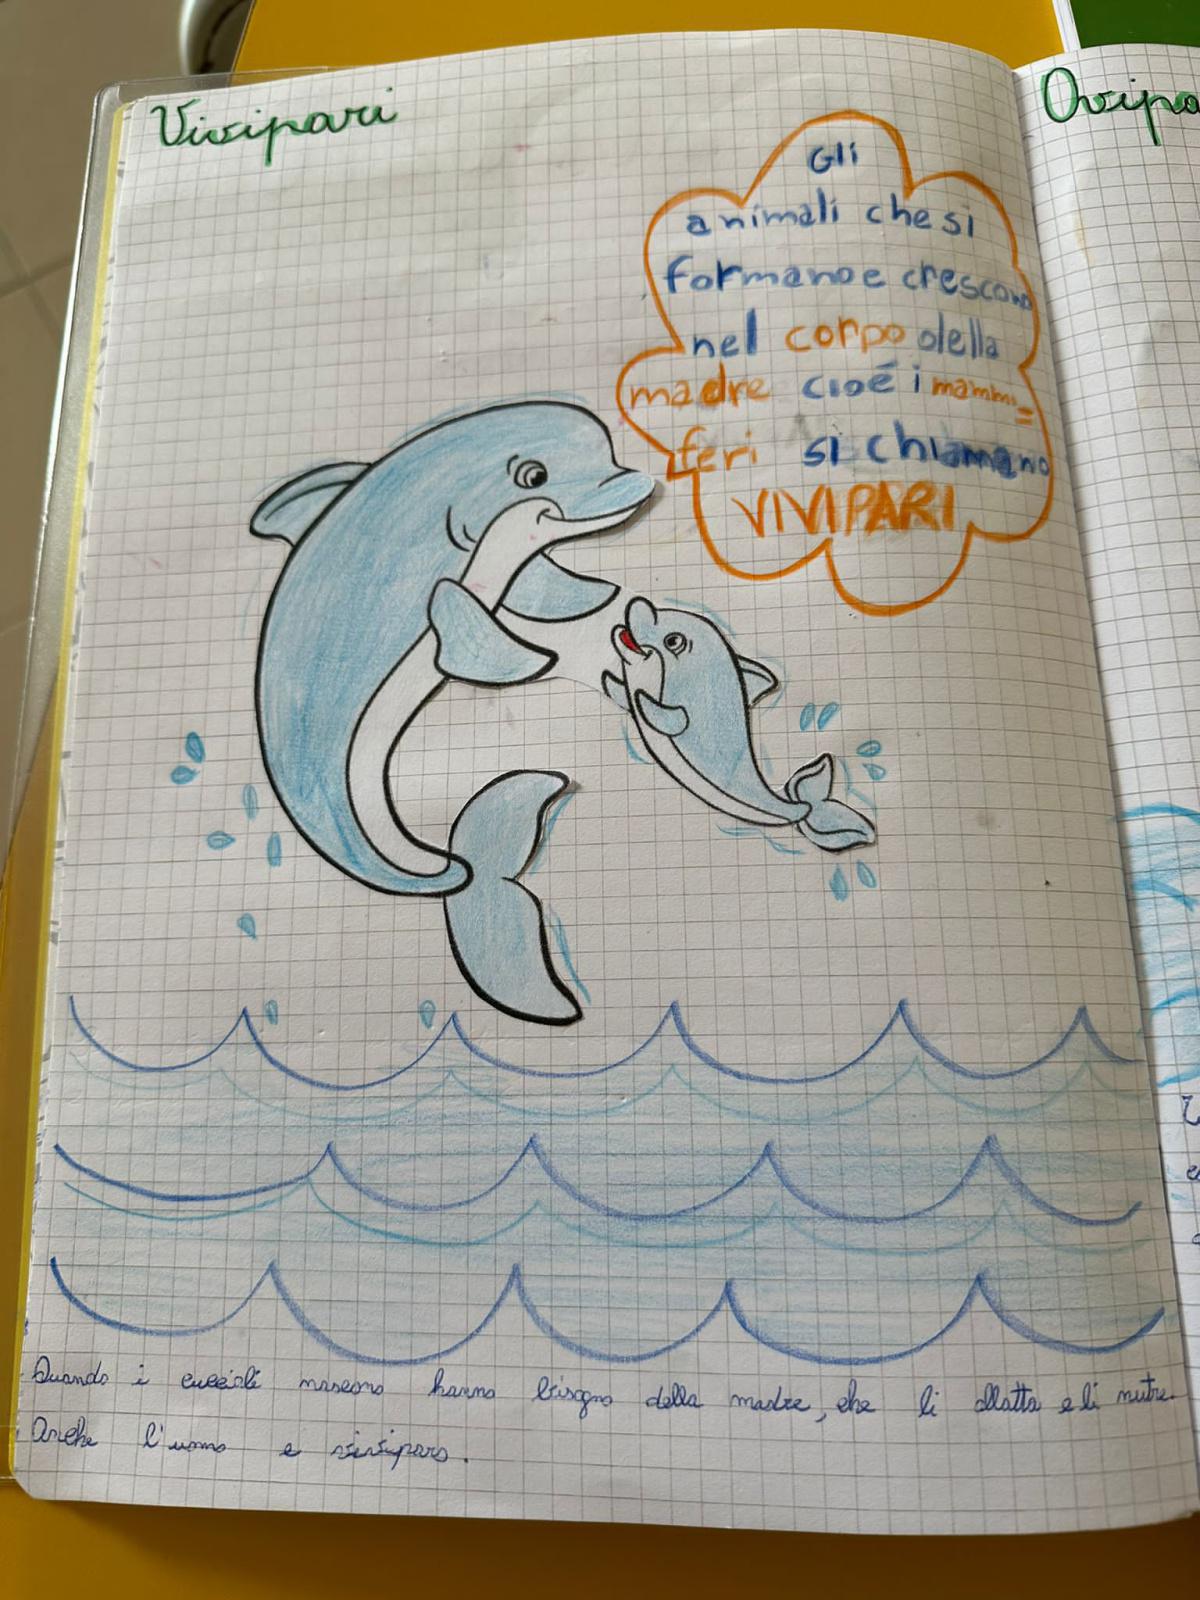 Vivipari
Gli
animali che si
formano e crescono
nel corpo della
madre cioé i mammi=
feri si chiamano
VIVIPARI
Quando i cuccioli nascono hanno bisogno della madre, che li allatta e li nutre.
Anche l'uomo e viviparo.
Ovipa